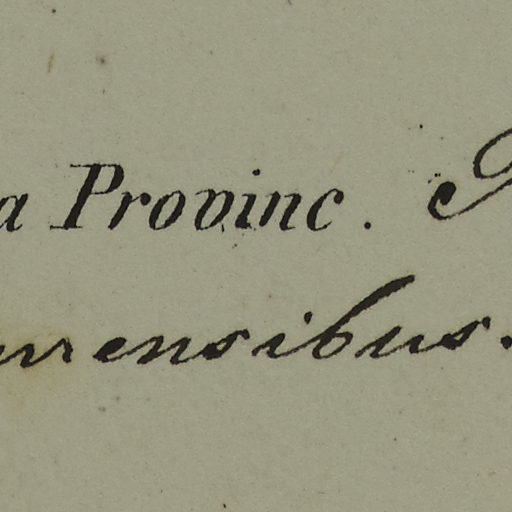 a Provinc.
urensibus.